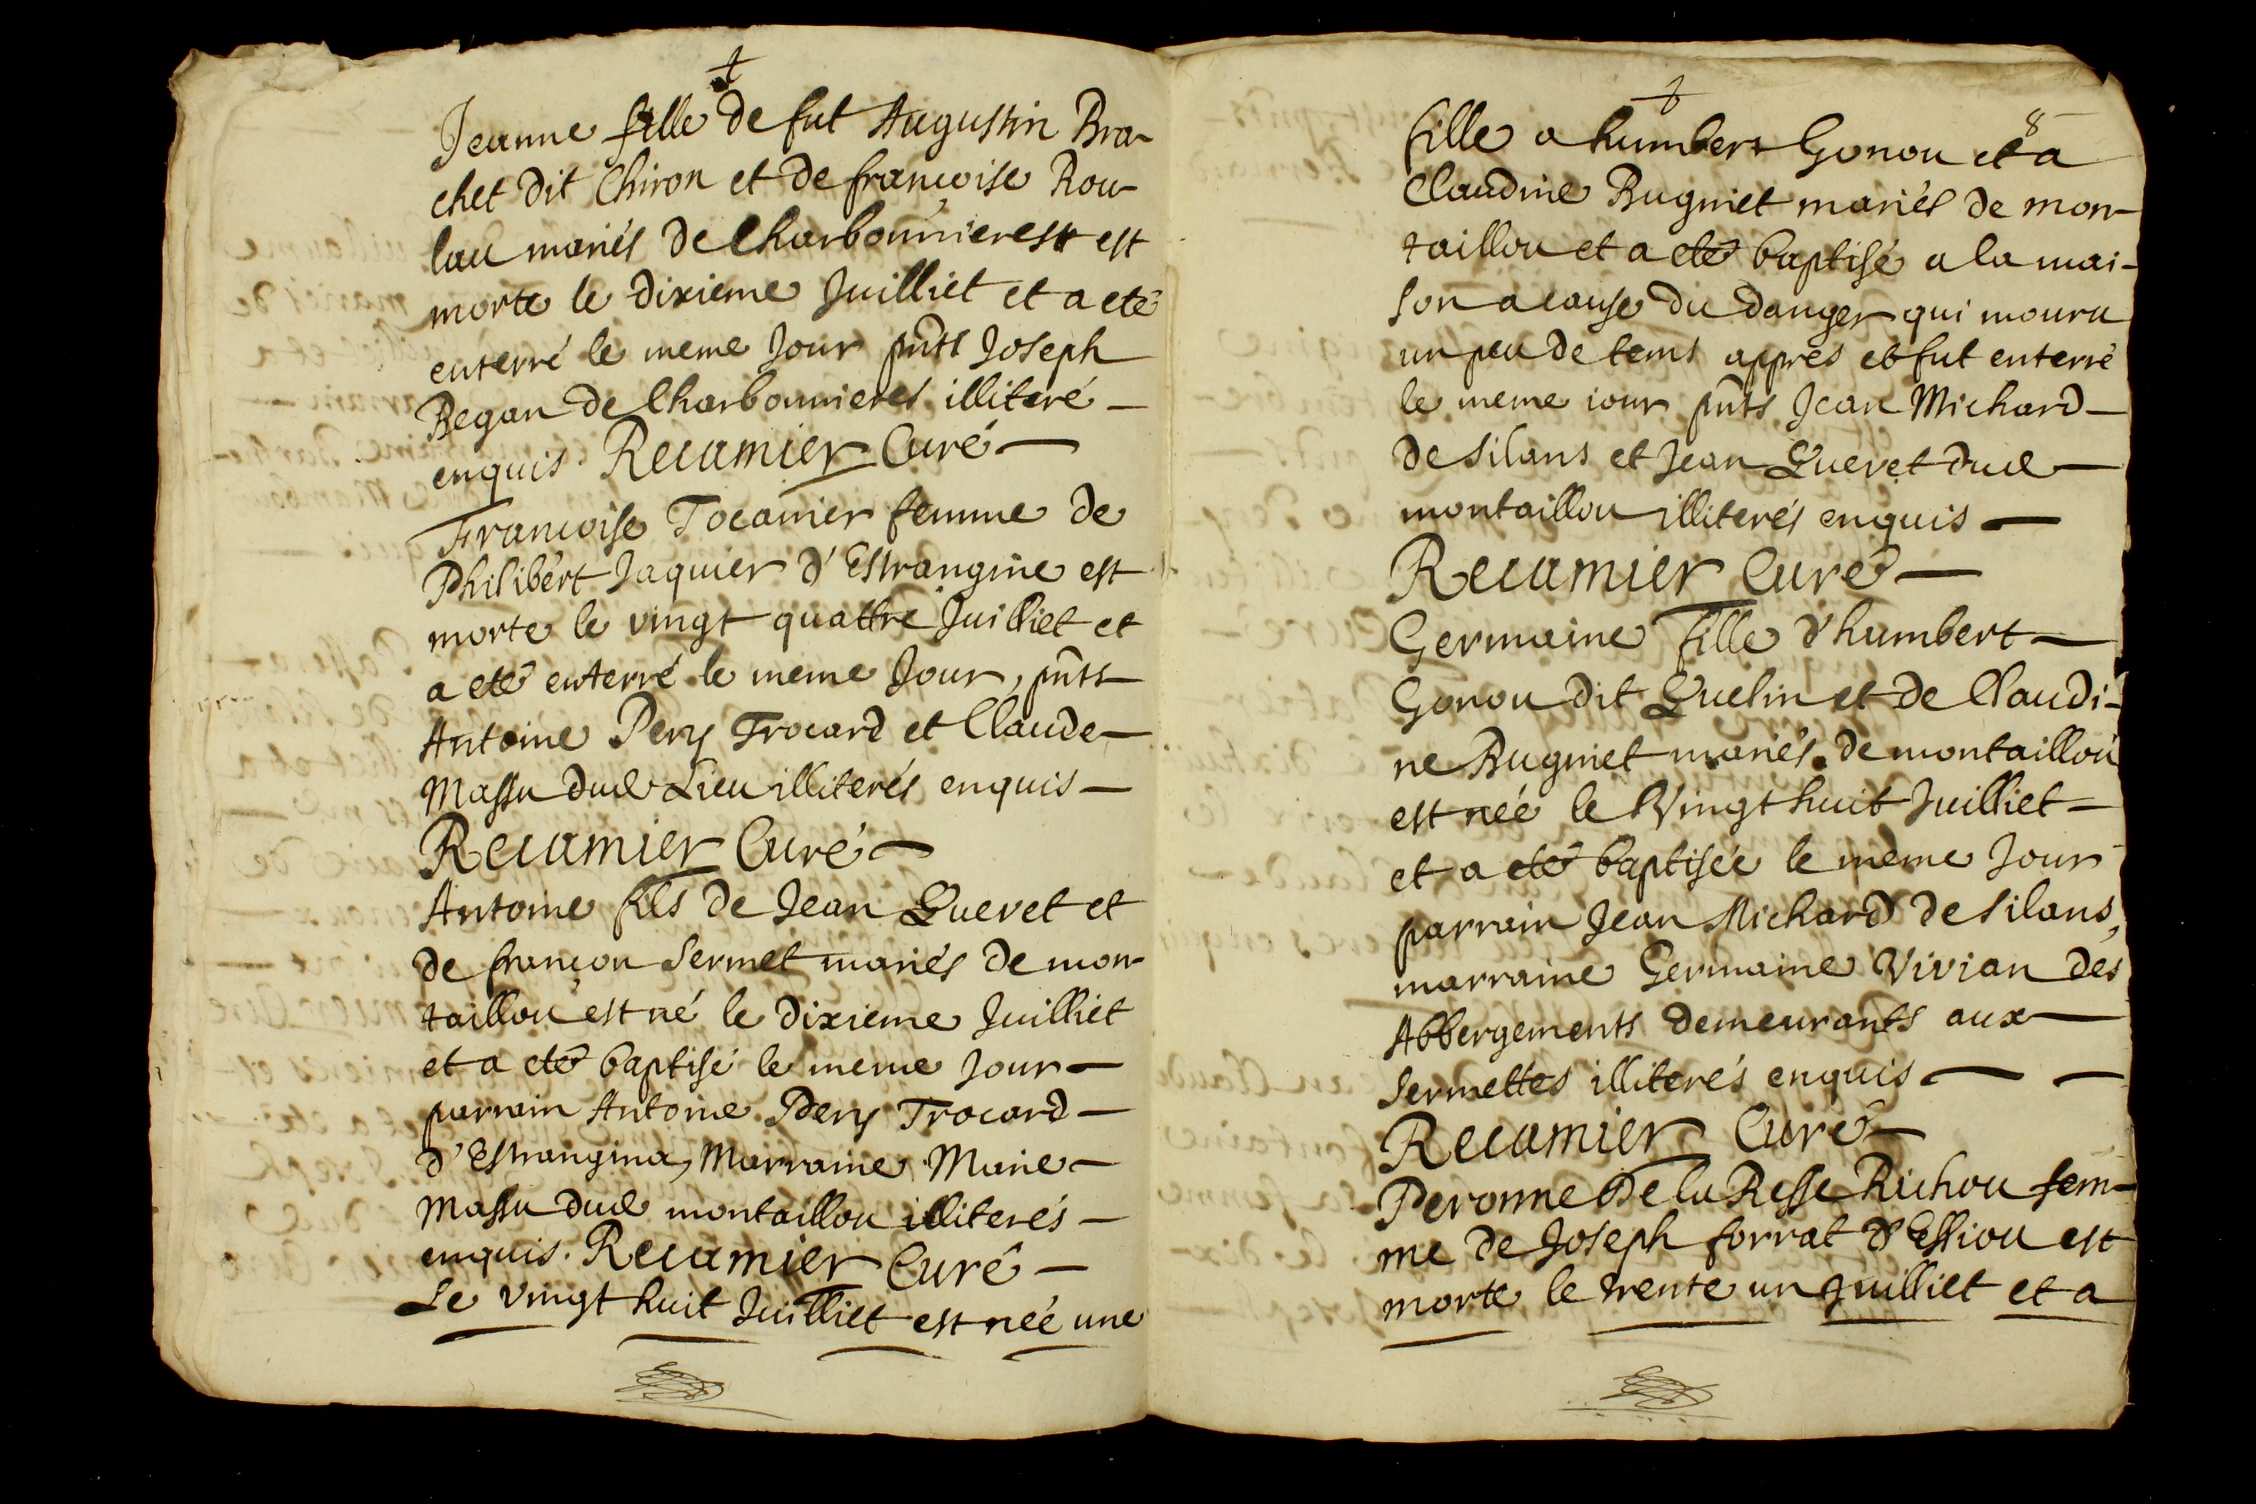 Jeanne fille de fut Augustin Bra-
chet dit Chiron et de françoise Rou-
lau mariés de Charbonnieres est
morte le dixieme Juilliet et a eté
enterré le meme Jour pnts Joseph
Began de Charbonnieres illiteré —
enquis. Recamier Curé —
Françoise Tocanier femme de
Philibert Jaquier d'Estrangine est
morte le vingt quattre Juilliet et
a eté enterré le meme Jour, pnts
Antoine Pery Trocard et Claude —
Massu dud Lieu illiterés enquis —
Recamier Curé —
Antoine fils de Jean Gueret et
de françon Sermet mariés de mon-
taillou est né le dixieme Juilliet
et a eté baptisé le meme Jour —
parrain Antoine Pery Trocard —
d'Estrangina, Marraine Marie —
Massu dud montaillou illiterés —
enquis. Recamier Curé —
Le vingt huit Juilliet est née une
8
fille a humbert Gonou et a
Claudine Bugniet mariés de mon-
taillou et a eté baptisé a la mai-
son a cause du danger qui mouru
un peu de tems appres et fut enterré
le meme iour pnts Jean Michard —
de Silans et Jean Gueret dud —
montaillou illiterés enquis —
Recamier Curé —
Germaine fille d'humbert —
Gonou dit Guelin et de Claudi-
ne Bugniet mariés de montaillou
est née le Vingt huit Juilliet —
et a eté baptisée le meme Jour
parrain Jean Michard de Silans,
marraine Germaine Vivian des
Abbergements demeurants aux —
Sermettes illiterés enquis — —
Recamier Curé —
Peronne De la Resse Richou fem-
me de Joseph forrat d'Essiou est
morte le trente un Juilliet et a